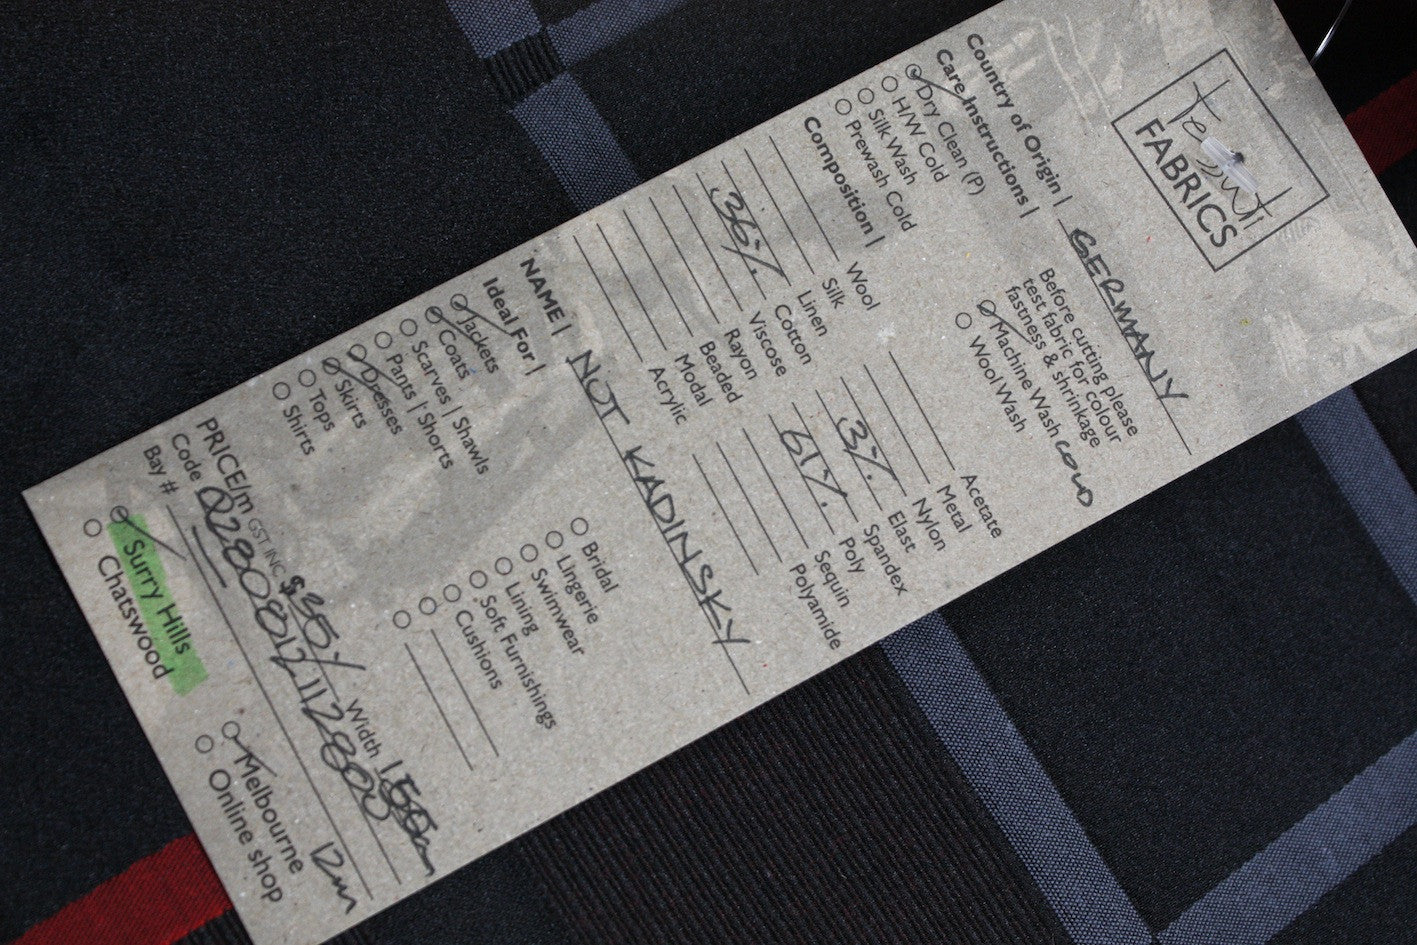 Tessuti
FABRICS
Country of Origin | GERMANY
Care Instructions |
Dry Clean (P)
H/W Cold
Silk Wash
Prewash Cold
Before cutting please
test fabric for colour
fastness & shrinkage
Machine Wash COLD
Wool Wash
Composition |
Wool
Silk
Linen
36% Cotton
Viscose
Rayon
Beaded
Modal
Acrylic
Acetate
Metal
Nylon
Elast
3% Spandex
Poly
61% Sequin
Polyamide
NAME | NOT KADINSKY
Ideal For |
Jackets
Coats
Scarves | Shawls
Pants | Shorts
Dresses
Skirts
Tops
Shirts
Bridal
Lingerie
Swimwear
Lining
Soft Furnishings
Cushions
PRICE/m GST INC $35/ Width 150cm
Code
Bay #
Surry Hills
Chatswood
Melbourne
Online shop